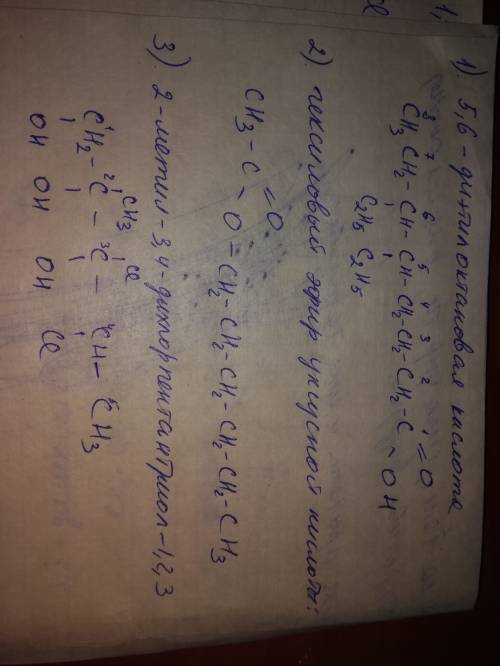 1) 5,6-диэтилоктановая кислота
8 7 6 5 4 3 2 1
CH3CH2-CH-CH-CH2-CH2-CH2-C=O
-OH
C2H5 C2H5
2) гексиловый эфир уксусной кислоты:
CH3-C=O
-O-CH2-CH2-CH2-CH2-CH2-CH3
3) 2-метил-3,4-дихлорпентантриол-1,2,3
CH3 Cl
1CH2-2C-3C-4CH-5CH3
OH OH OH Cl